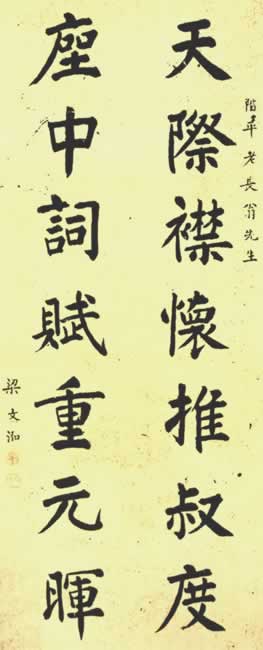 老長翁先生
天際襟懷推叔度
座中詞賦重元暉
梁文